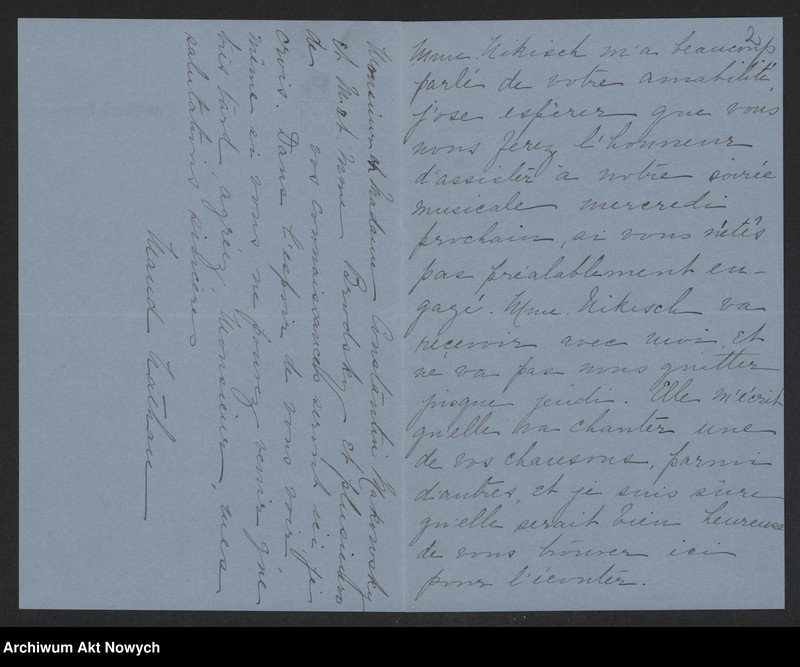 2
Mme. Nikisch m'a beaucoup
parlé de votre amabilité,
j'ose espérer que vous
nous ferez l'honneur
d'assister à notre soirée
musicale mercredi
prochain, si vous n'etês
pas préalablement en-
gagé. Mme. Nikisch va
reçevoir avec moi, et
ne va pas nous quitter
jusque jeudi. Elle m'écrit
qu'elle va chanter une
de vos chansons, parmi
d'autres, et je suis sûre
qu'elle serait bien heureuse
de vous trouver ici
pour l'écouter.
Monsieur et Madame Constantin Makowsky
et M. et Mme Brodsky et plusieurs
de vos connaissances seront ici je
crois. Dans l'espoir de vous voir,
même si vous ne pouvez venir que
très tard, agréez, Monsieur, mes
salutations sincères
Maud Nathan
Archiwum Akt Nowych